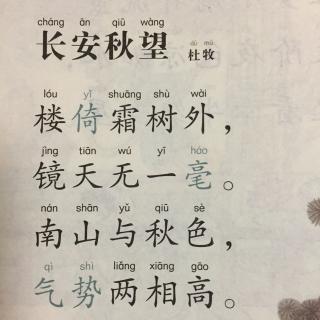 cháng ān qiū wàng dù mù
长安秋望 杜牧
lóu yǐ shuāng shù wài
楼倚霜树外，
jìng tiān wú yī háo
镜天无一毫。
nán shān yǔ qiū sè
南山与秋色，
qì shì liǎng xiāng gāo
气势两相高。